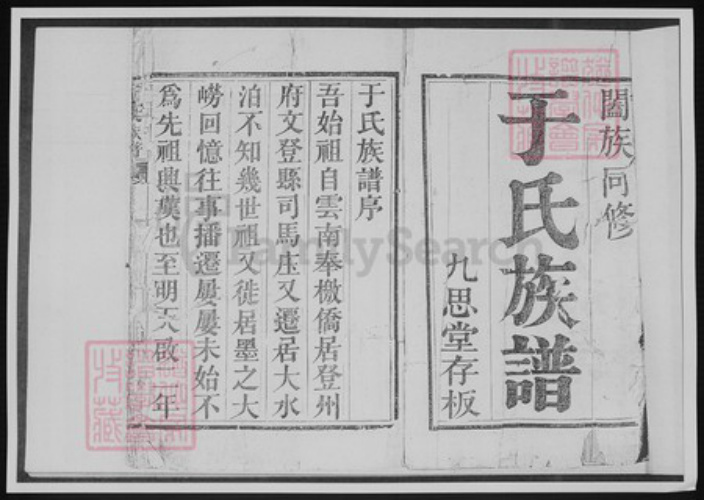 闔族同修
于氏族譜
九思堂存板
于氏族譜序
吾始祖自雲南奉檄僑居登州
府文登縣司馬庄又遷居大水
泊不知幾世祖又徙居墨之大
嶗回憶往事播遷屡屡未始不
為先祖興嘆也至明天啟二年
FamilySearch